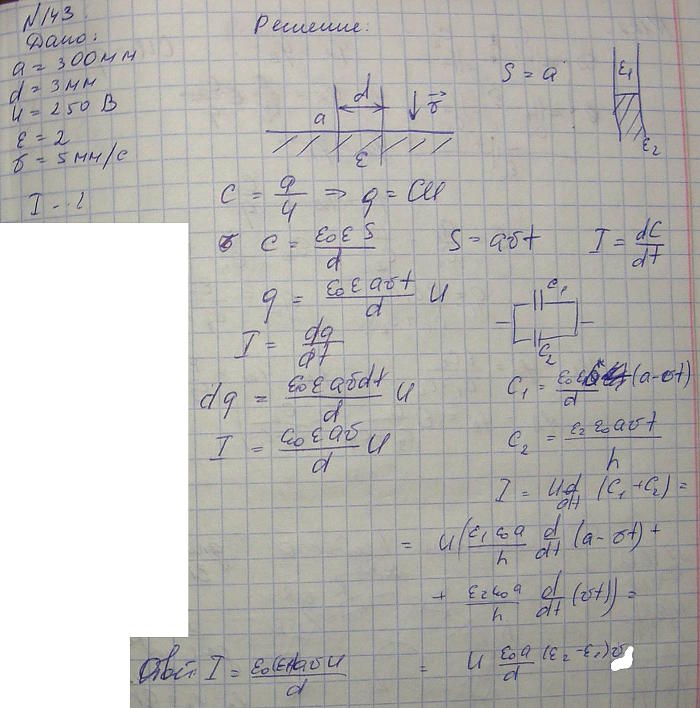 N 143
Дано:
a = 300 мм
d = 3 мм
U = 250 В
ε = 2
v = 5 мм/с
I - ?
Решение:
a d v ε
S = a
ε₁
ε₂
C = q/U ⇒ q = CU
C = ε₀ε S/d S = avt I = dC/dt
q = ε₀ε avt/d U
C₁
C₂
I = dq/dt
dq = ε₀ε avdt/d U
I = ε₀ε av/d U
C₁ = ε₀ε₁/d (a-vt)
C₂ = ε₂ε₀avt/h
I = U d/dt (C₁ + C₂) =
= U(ε₁ε₀a/h d/dt (a-vt) +
+ ε₂ε₀a/h d/dt (vt)) =
= U ε₀a/d (ε₂-ε₁)v
Ответ: I = ε₀(ε-1)avU/d